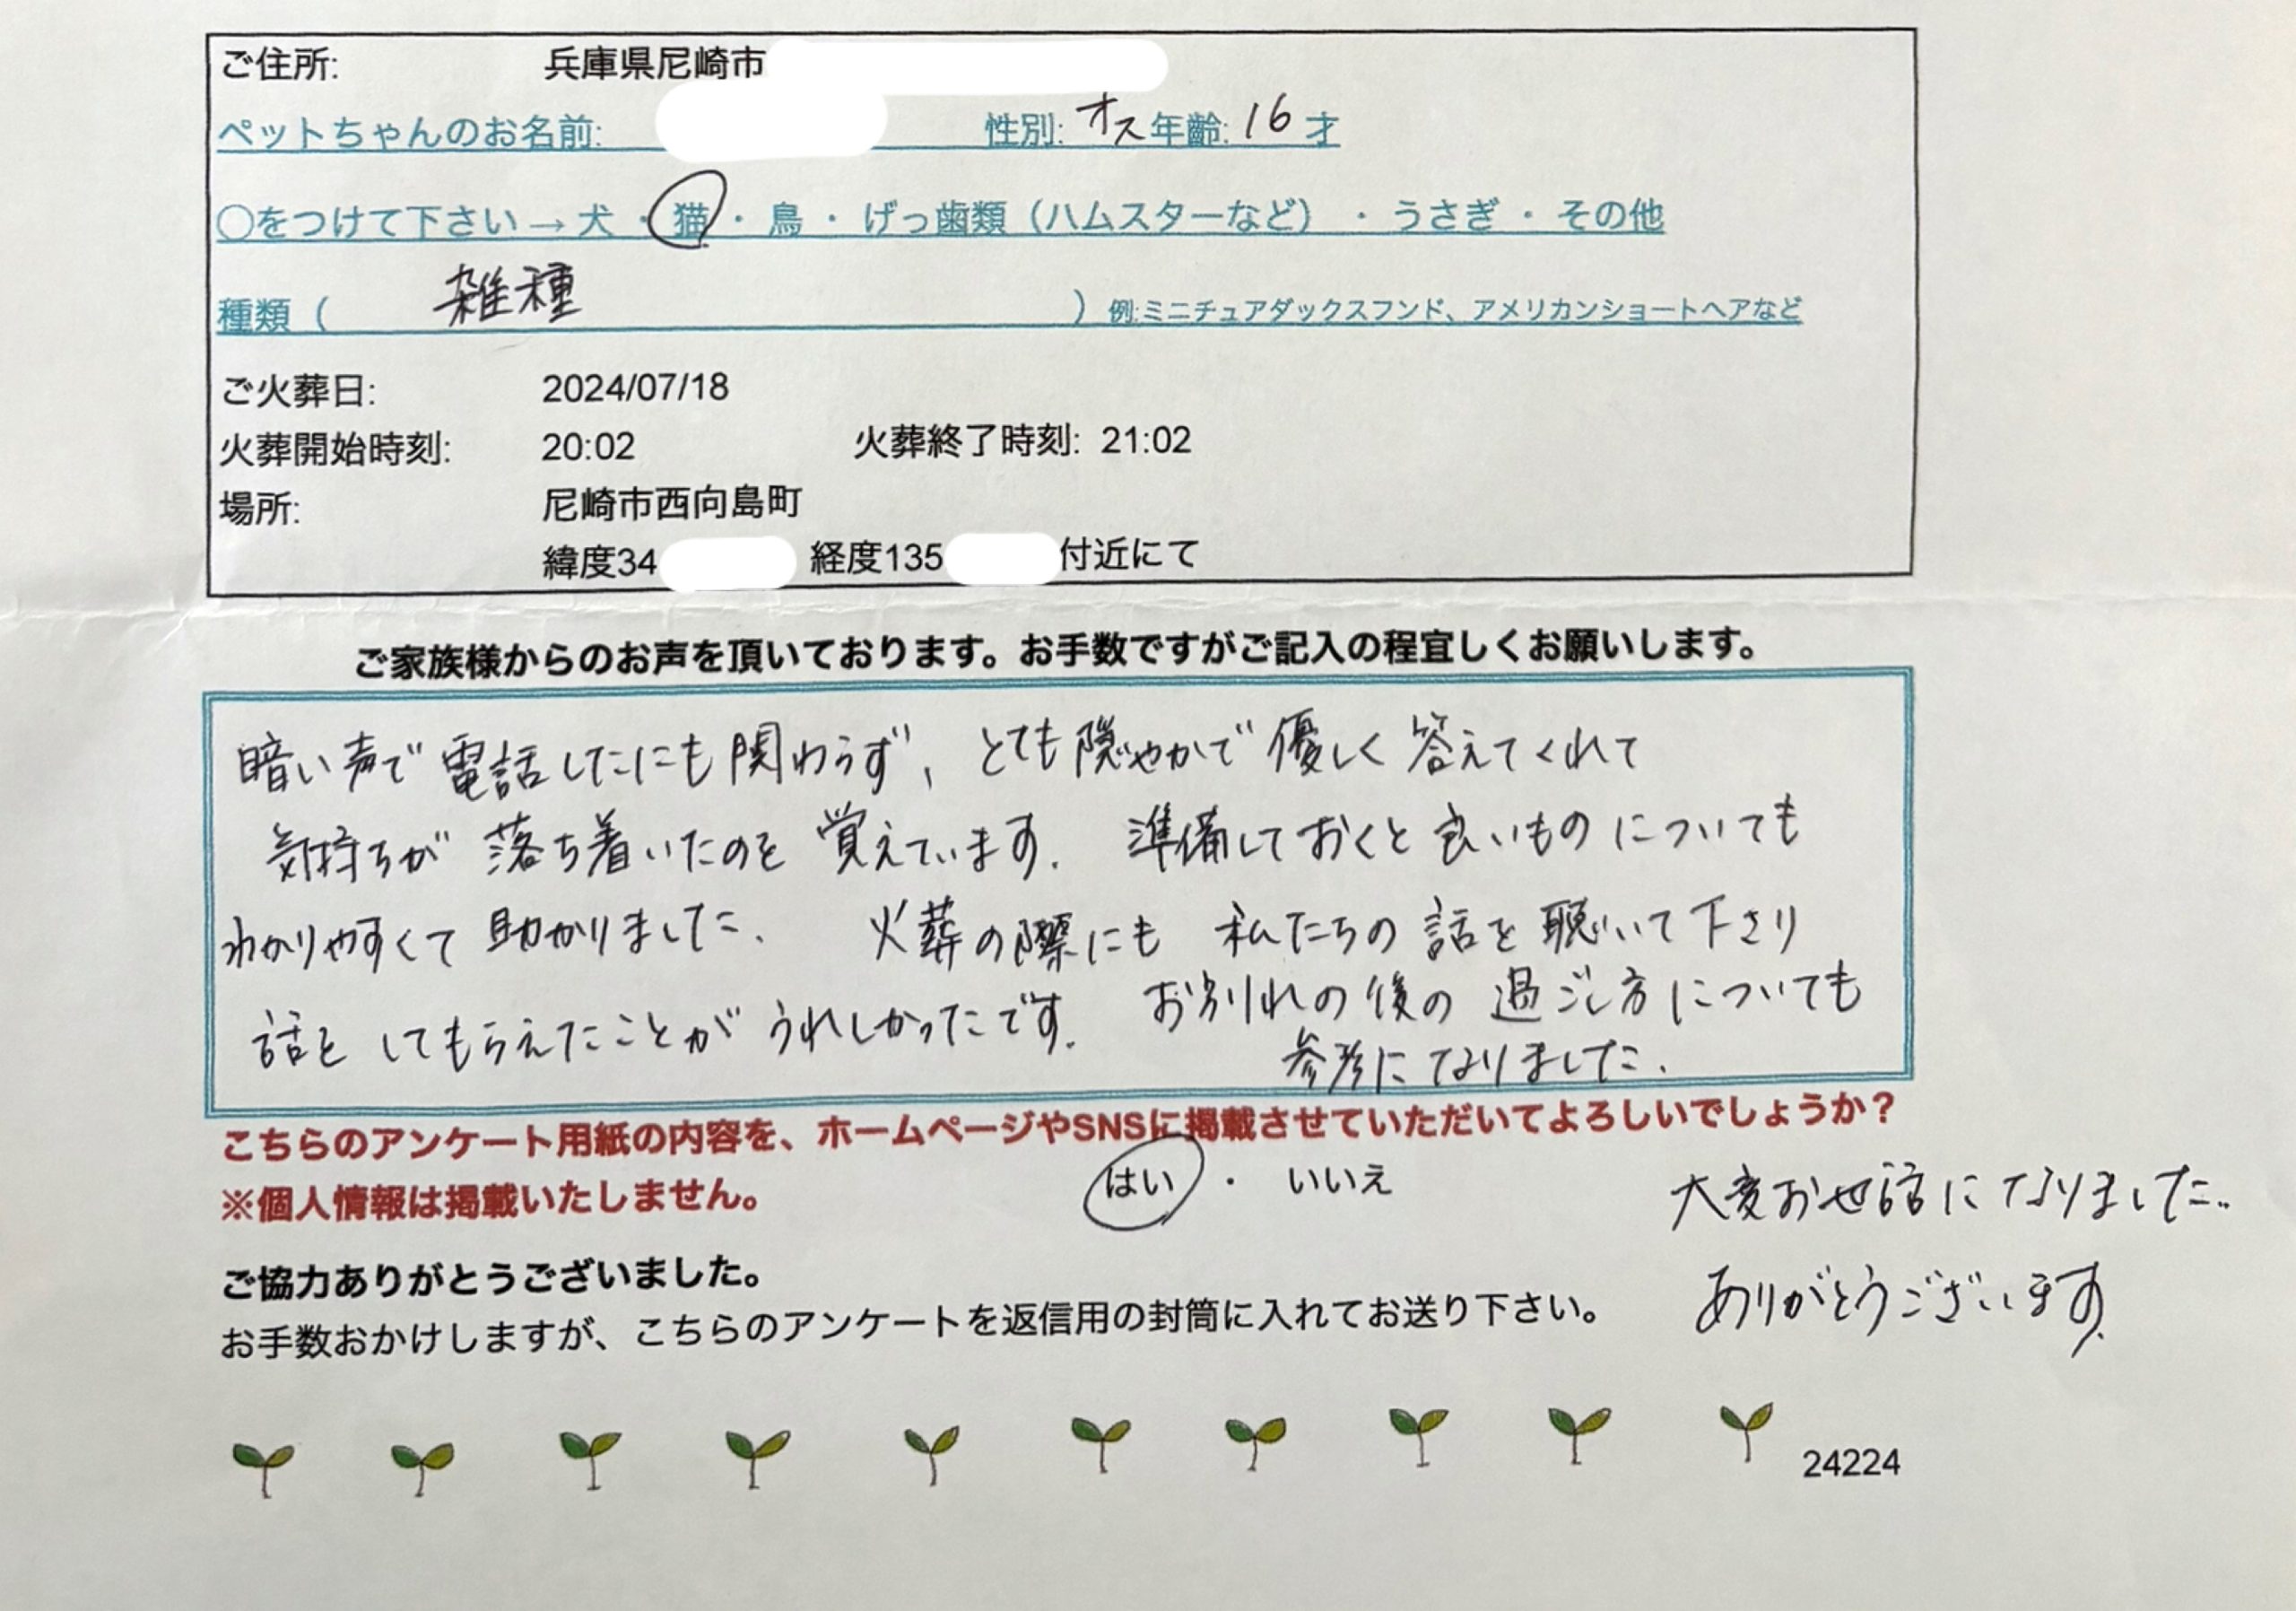 ご住所: 兵庫県尼崎市
ペットちゃんのお名前: 性別: オス 年齢: 16 才
○をつけて下さい→ 犬 ・ 猫 ・ 鳥 ・ げっ歯類（ハムスターなど） ・ うさぎ ・ その他
種類（ 雑種 ）例:ミニチュアダックスフンド、アメリカンショートヘアなど
ご火葬日: 2024/07/18
火葬開始時刻: 20:02 火葬終了時刻: 21:02
場所: 尼崎市西向島町
緯度34 経度135 付近にて
ご家族様からのお声を頂いております。お手数ですがご記入の程宜しくお願いします。
暗い声で電話したにも関わらず、とても穏やかで優しく答えてくれて
気持ちが落ち着いたのを覚えています. 準備しておくと良いものについても
わかりやすくて助かりました. 火葬の際にも私たちの話を聴いて下さり
話をしてもらえたことがうれしかったです. お別れの後の過ごし方についても
参考になりました.
こちらのアンケート用紙の内容を、ホームページやSNSに掲載させていただいてよろしいでしょうか？
※個人情報は掲載いたしません。 はい ・ いいえ
大変お世話になりました..
ありがとうございます.
ご協力ありがとうございました。
お手数おかけしますが、こちらのアンケートを返信用の封筒に入れてお送り下さい。
24224